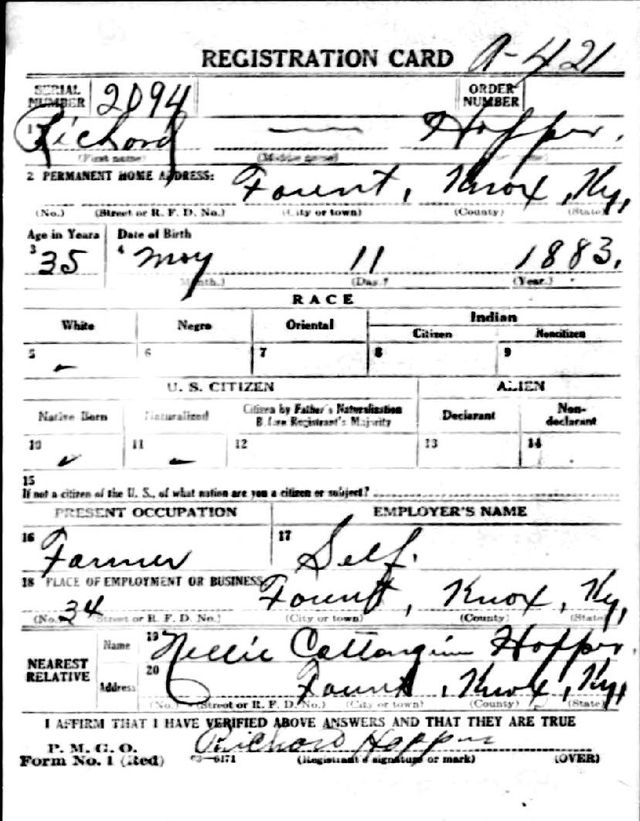 REGISTRATION CARD A-421
SERIAL NUMBER 2094 ORDER NUMBER
1 Richard — Hopper.
(First name) (Middle name)
2 PERMANENT HOME ADDRESS: Fount, Knox, Ky,
(No.) (Street or R. F. D. No.) (City or town) (County) (State)
Age in Years Date of Birth
3 35 4 May 11 1883.
(Month.) (Day.) (Year.)
RACE
White Negro Oriental Indian
Citizen Noncitizen
5 ✓ 6 7 8 9
U. S. CITIZEN ALIEN
Native Born Naturalized Citizen by Father's Naturalization Before Registrant's Majority Declarant Non-declarant
10 ✓ 11 12 13 14
15
If not a citizen of the U. S., of what nation are you a citizen or subject?
PRESENT OCCUPATION EMPLOYER'S NAME
16 Farmer 17 Self.
18 PLACE OF EMPLOYMENT OR BUSINESS Fount, Knox, Ky,
(No.) 34 (Street or R. F. D. No.) (City or town) (County) (State)
NEAREST RELATIVE Name 19 Nellie Hopper.
Address 20 Fount, Knox, Ky,
(No.) (Street or R. F. D. No.) (City or town) (County) (State)
I AFFIRM THAT I HAVE VERIFIED ABOVE ANSWERS AND THAT THEY ARE TRUE
P. M. G. O.
Form No. 1 (Red) 03—6171 Richard Hopper
(Registrant's signature or mark) (OVER)